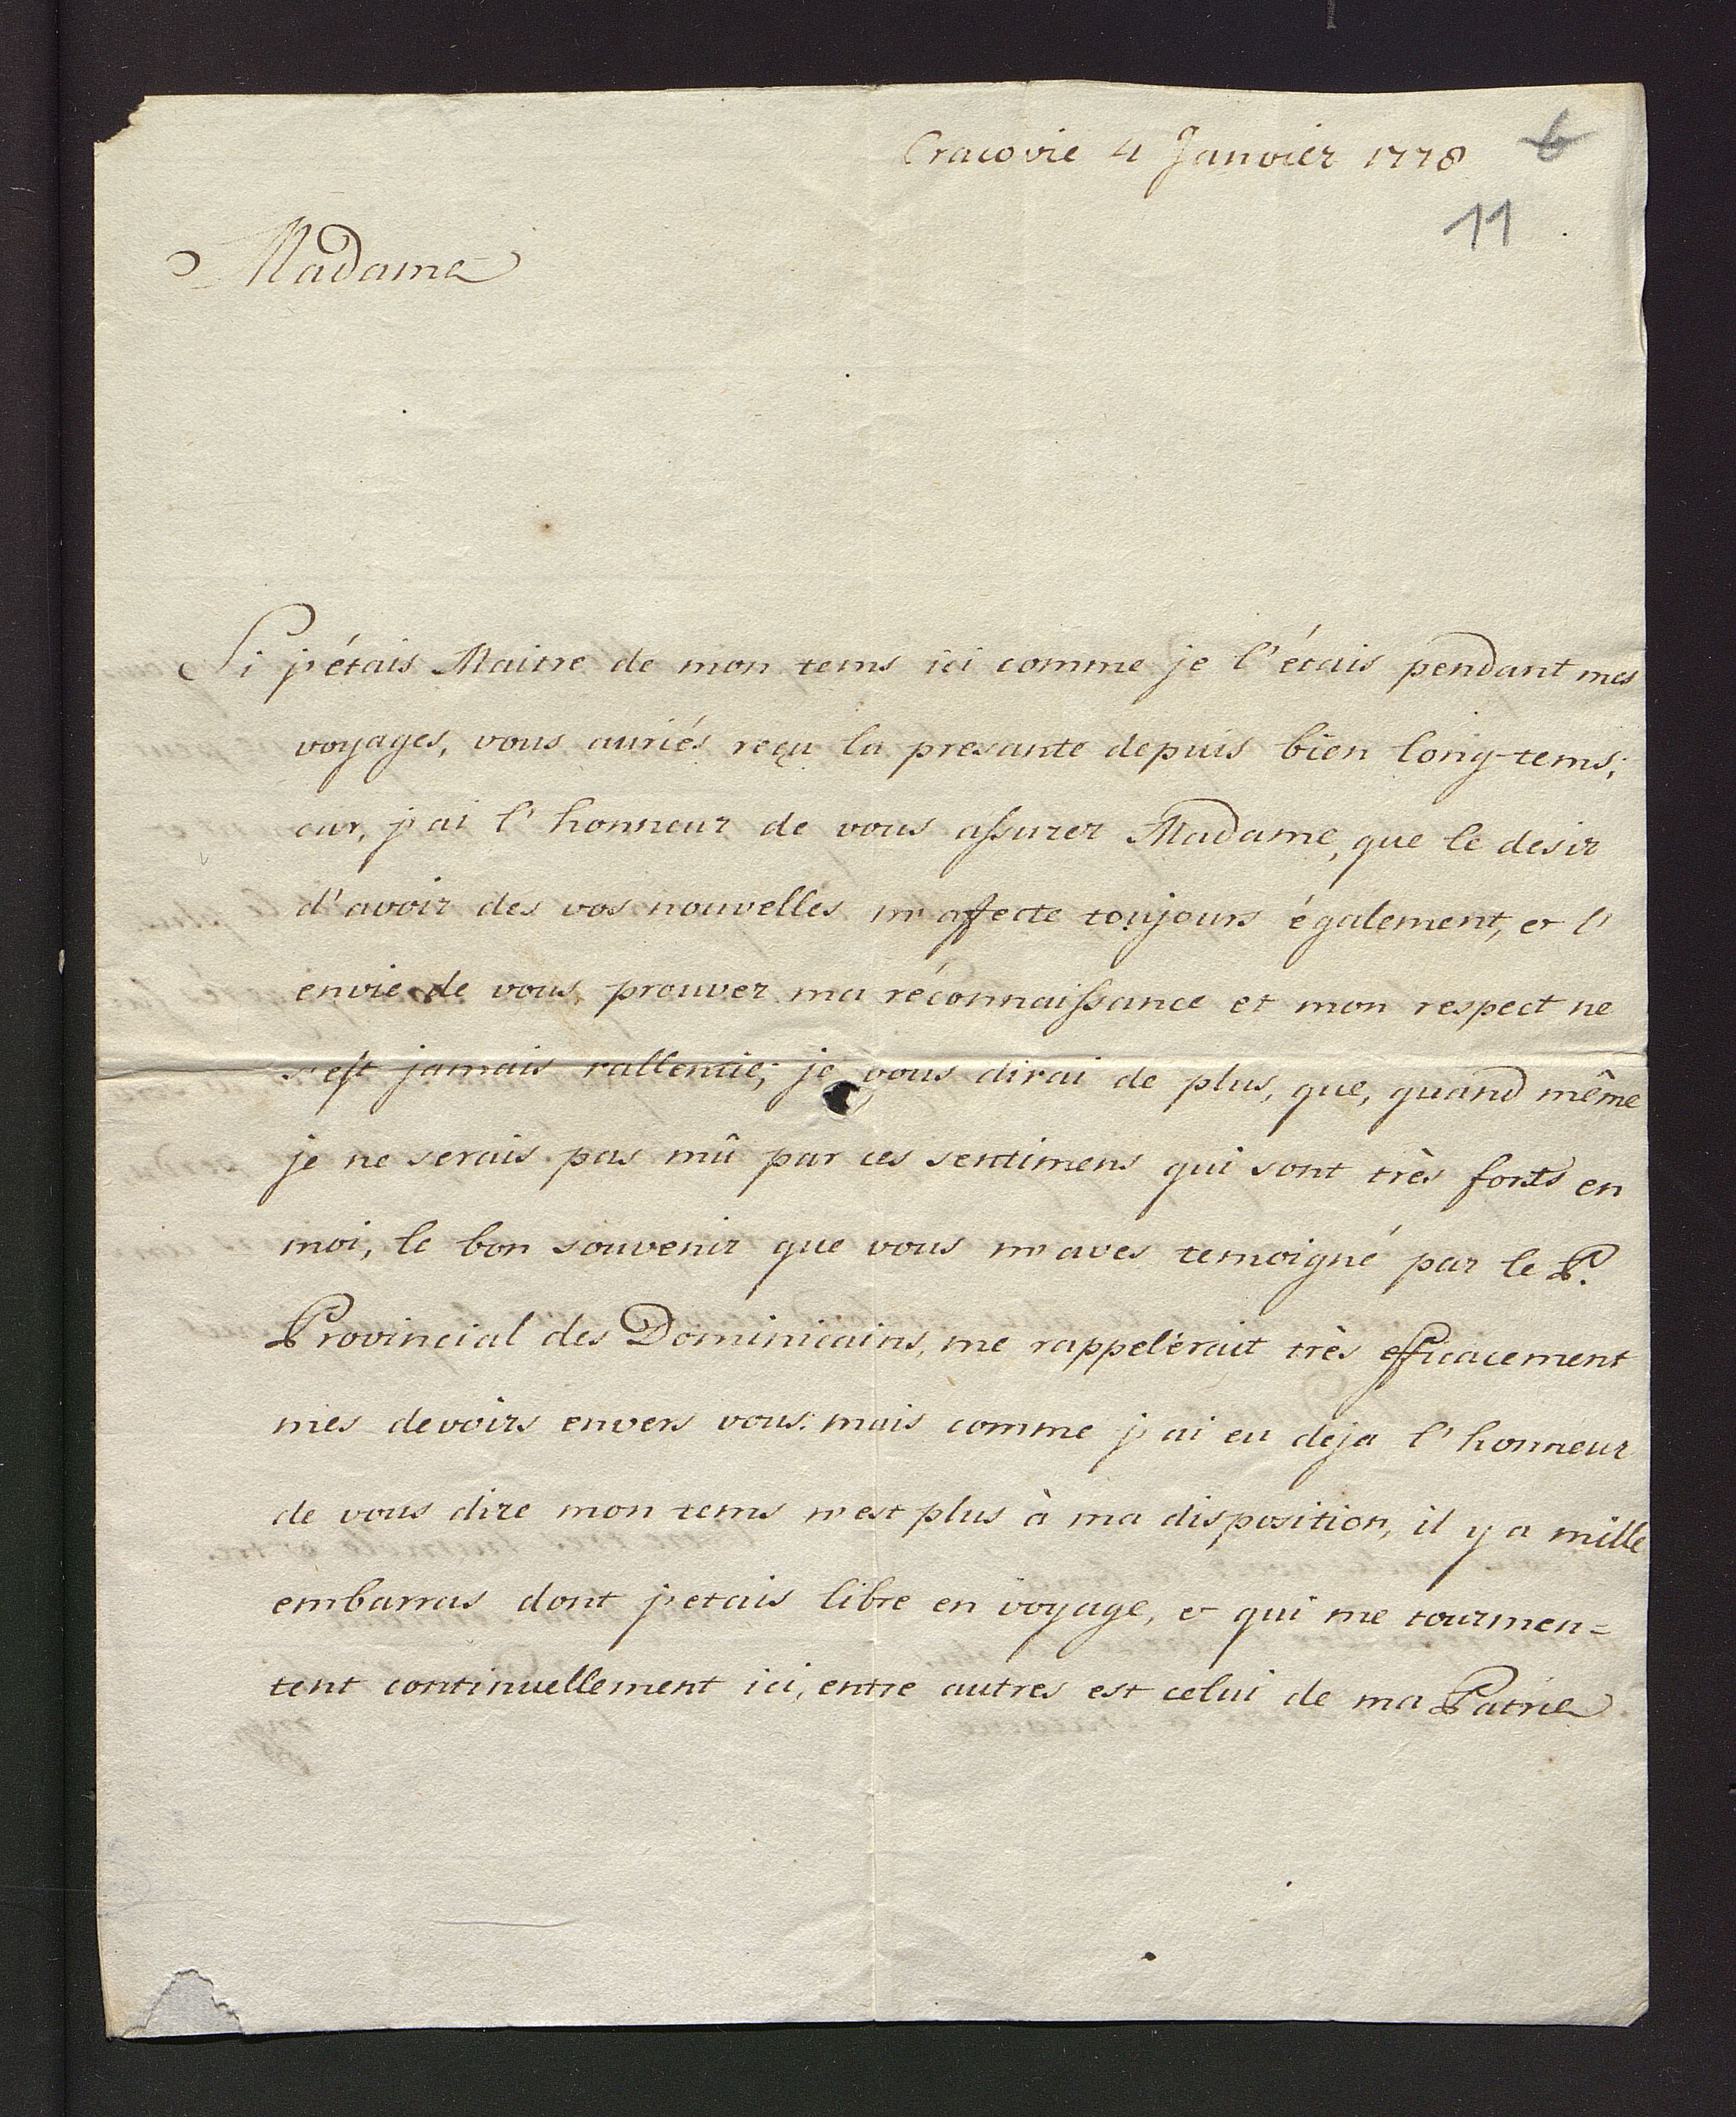 Cracovie 4 Janvier 1778
6
11
Madame
Si j'étais Maitre de mon tems ici comme je l'étais pendant mes
voyages, vous auriés reçu la presante depuis bien long-tems;
car, j'ai l'honneur de vous assurer Madame, que le desir
d'avoir des vos nouvelles m'affecte toujours également, et l'
envie de vous prouver ma réconnaissance et mon respect ne
s'est jamais rallentie; je vous dirai de plus, que, quand même
je ne serais pas mû par ces sentimens qui sont très forts en
moi, le bon souvenir que vous m'aves temoigné par le P.
Provincial des Dominicains, me rappelérait très efficacement
mes devoirs envers vous: mais comme j'ai eu deja l'honneur
de vous dire mon tems n'est plus à ma disposition, il y a mille
embarras dont j'etais libre en voyage, et qui me tourmen=
tent continuellement ici, entre autres est celui de ma Patrie